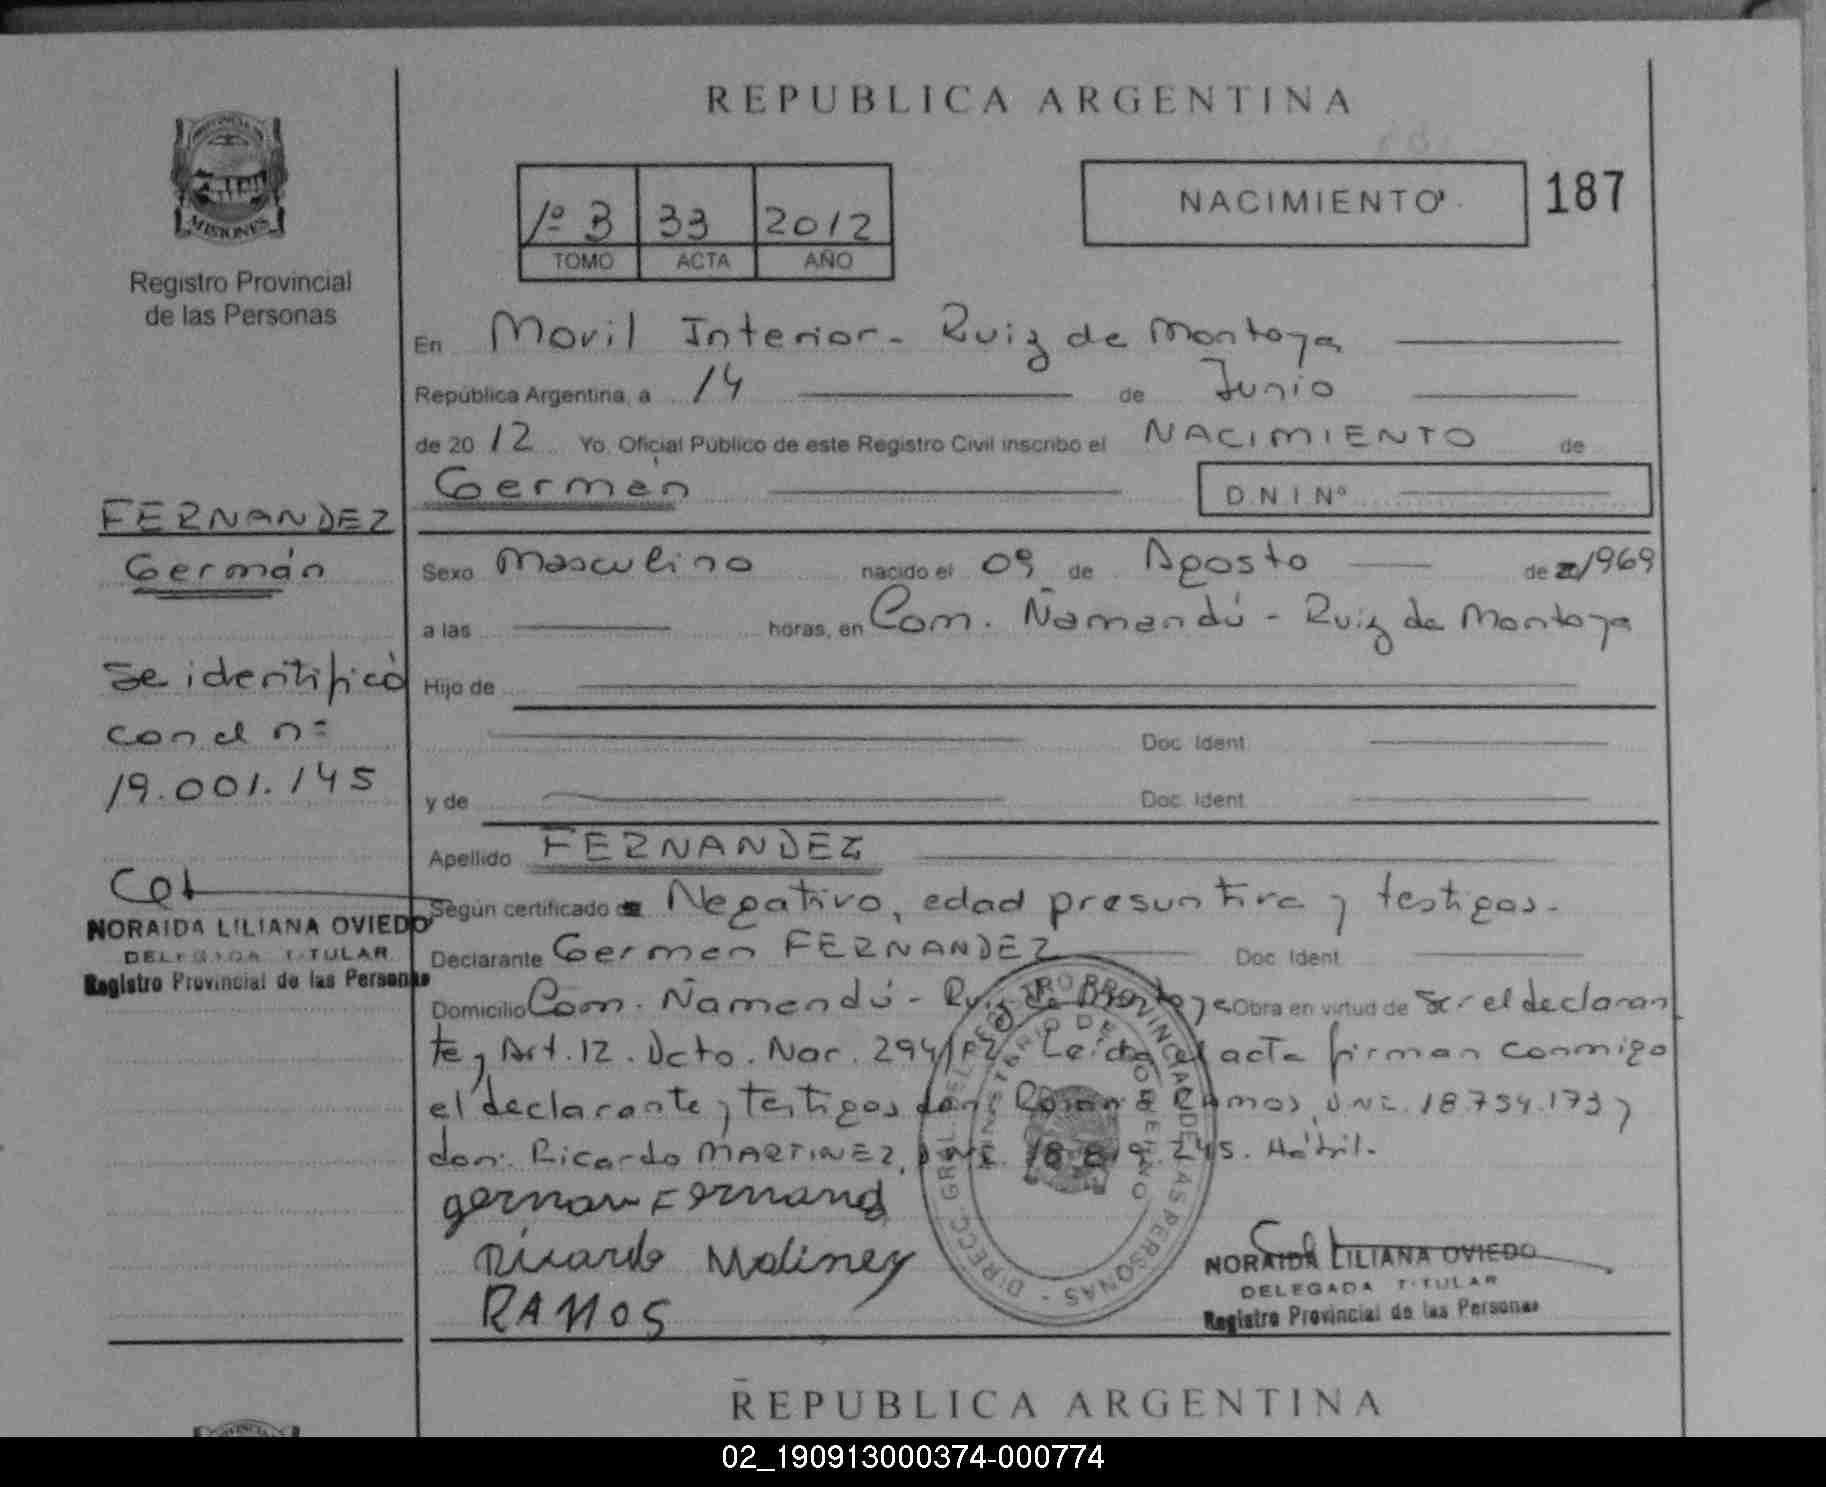 REPUBLICA ARGENTINA
NACIMIENTO
187
1º 3 33 2012
TOMO ACTA AÑO
MISIONES
Registro Provincial
de las Personas
En Movil Interior - Ruiz de Montoya
República Argentina, a 14 de Junio
de 2012 Yo, Oficial Público de este Registro Civil inscribo el NACIMIENTO de
Germán
D.N.I Nº
Sexo Masculino nacido el 09 de Agosto de 1969
a las horas, en Com. Ñamandú - Ruiz de Montoya
Hijo de
Doc. Ident
y de Doc. Ident
Apellido FERNANDEZ
Según certificado Negativo, edad presuntiva y testigos.
Declarante German FERNANDEZ Doc. Ident
Domicilio Com. Ñamandú - Ruiz de Montoya Obra en virtud de Ser el declaran
te y Art. 12. Dcto. Nac. 294/ Leida el acta firman conmigo
el declarante y testigos don: Ramos, DNI. 18.754.173 y
don: Ricardo MARTINEZ, DNI. 245. Hábil.
german Fernand
Ricardo
RAMOS
FERNANDEZ
Germán
Se identificó
con el nº
19.001.145
NORAIDA LILIANA OVIEDO
DELEGADA TITULAR
Registro Provincial de las Personas
DIRECC. GRAL. DEL REGISTRO PROVINCIAL DE LAS PERSONAS
MINISTERIO DE GOBIERNO
NORAIDA LILIANA OVIEDO
DELEGADA TITULAR
Registro Provincial de las Personas
REPUBLICA ARGENTINA
02_190913000374-000774